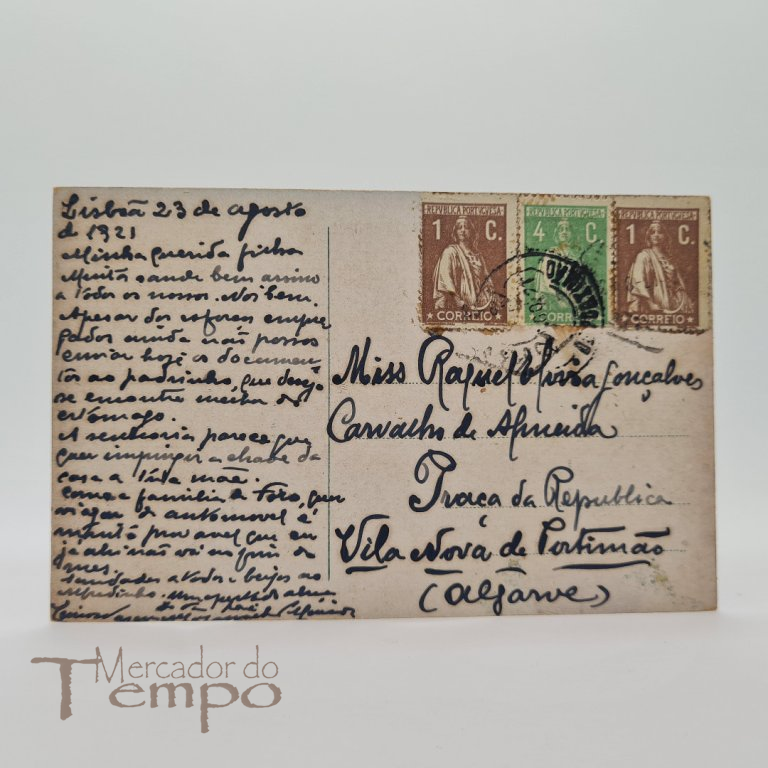 Lisbôa 23 de agosto
de 1921
Minha querida filha
Muita saude bem assino
a todos os nossos. Nos bem.
Apesar dos esforcos empre
gados ainda não possos
enviar hoje os documen
tos ao padrinho, que desejo
se encontre melhor do
estomago.
A senhoria parece que
quer impingir a chave da
casa a tua mãe.
Como a familia de Faro, quer
viajar de automovel é
muito provavel que eu
já ahi não vá no fim do
mes.
Saudades a todos e beijos ao
REPUBLICA PORTUGUESA
1 C.
CORREIO
REPUBLICA PORTUGUESA
4 C.
CORREIO
REPUBLICA PORTUGUESA
1 C.
CORREIO
PORTIMÃO
Miss Raquel Gonçalves
Carvalho de Almeida
Praça da Republica
Vila Nova de Portimão
(Algarve)
Mercador do
Tempo